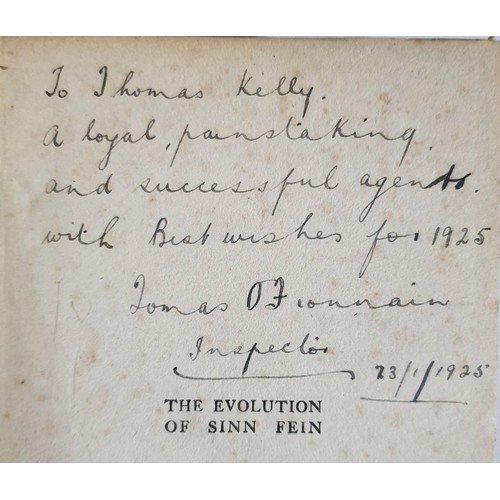 To Thomas Kelly.
A loyal, painstaking
and successful agent.
with Best wishes for 1925
Tomas O Fionnain
Inspector
23/1/1925
THE EVOLUTION
OF SINN FEIN